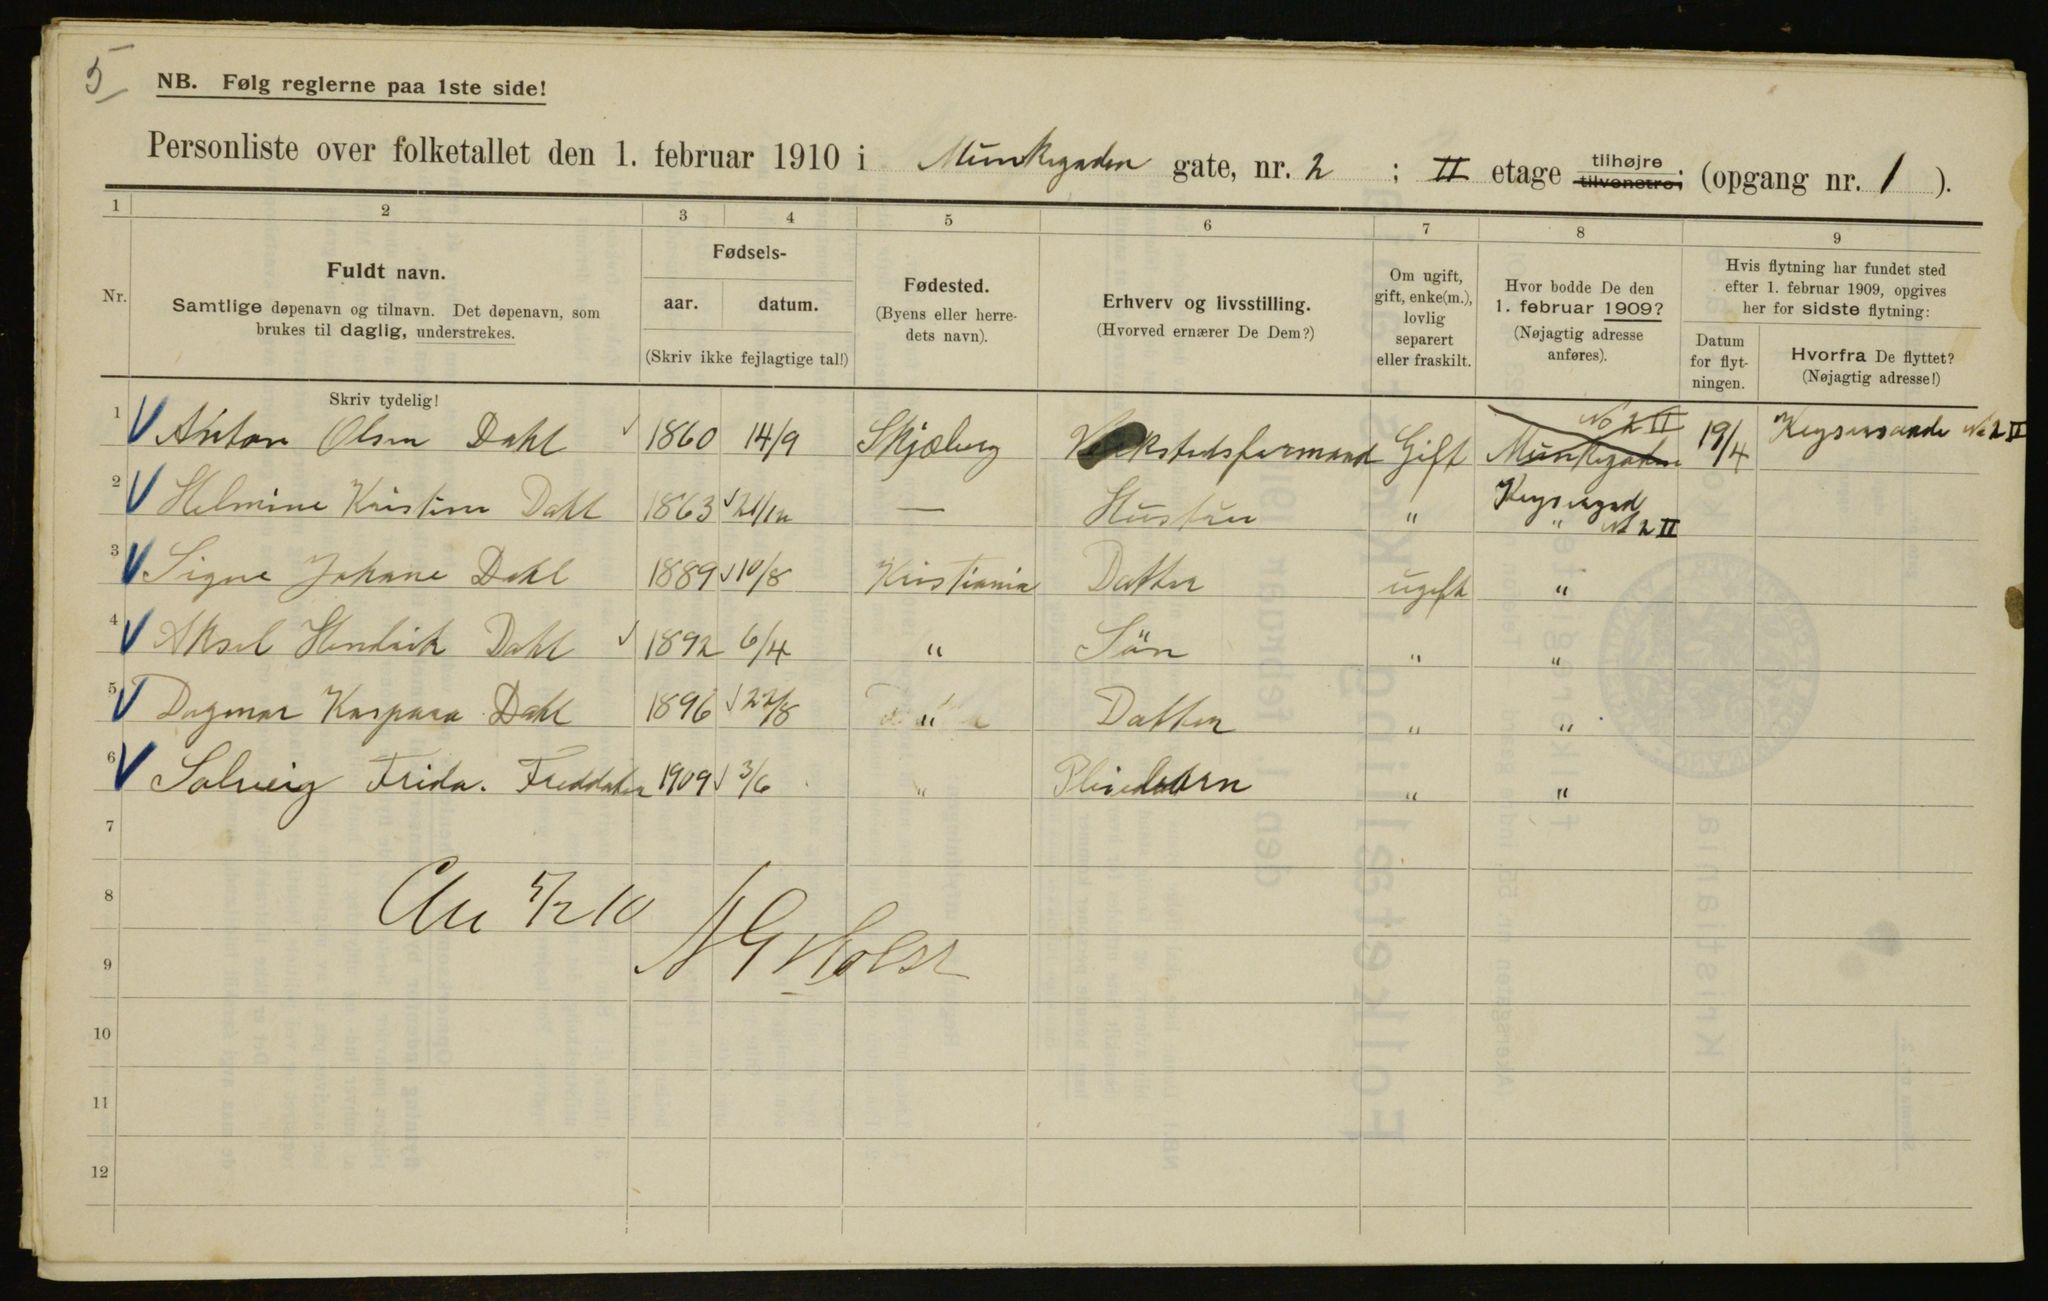 5
NB. Følg reglerne paa 1ste side!
Personliste over folketallet den 1. februar 1910 i Munkegaden gate, nr. 2 ; II etage tilhøjre tilvenstre; (opgang nr. 1 ).
1 2 3 4 5 6 7 8 9
Nr.
Fuldt navn.
Samtlige døpenavn og tilnavn. Det døpenavn, som
brukes til daglig, understrekes.
Skriv tydelig!
Fødsels-
aar. datum.
(Skriv ikke fejlagtige tal!)
Fødested.
(Byens eller herre-
dets navn).
Erhverv og livsstilling.
(Hvorved ernærer De Dem?)
Om ugift,
gift, enke(m.),
lovlig
separert
eller fraskilt.
Hvor bodde De den
1. februar 1909?
(Nøjagtig adresse
anføres).
Hvis flytning har fundet sted
efter 1. februar 1909, opgives
her for sidste flytning:
Datum
for flyt-
ningen.
Hvorfra De flyttet?
(Nøjagtig adresse!)
1 Anton Olsen Dahl 1860 14/9 Skjæberg Verkstedsformand Gift No 2 II Munkegaden 19/4 No 2 II
2 Helmine Kristine Dahl 1863 — Hustru " Keysergd " No 2 II
3 Signe Johane Dahl 1889 10/8 Kristiania Datter ugift "
4 Aksel Hendrik Dahl 1892 6/4 " Sön " "
5 Dagmar Kaspara Dahl 1896 22/8 " Datter " "
6 Solveig Frida. 1909 3/6 " Pleiebarn " "
7
8
9
10
11
12
5/2 10
Holst